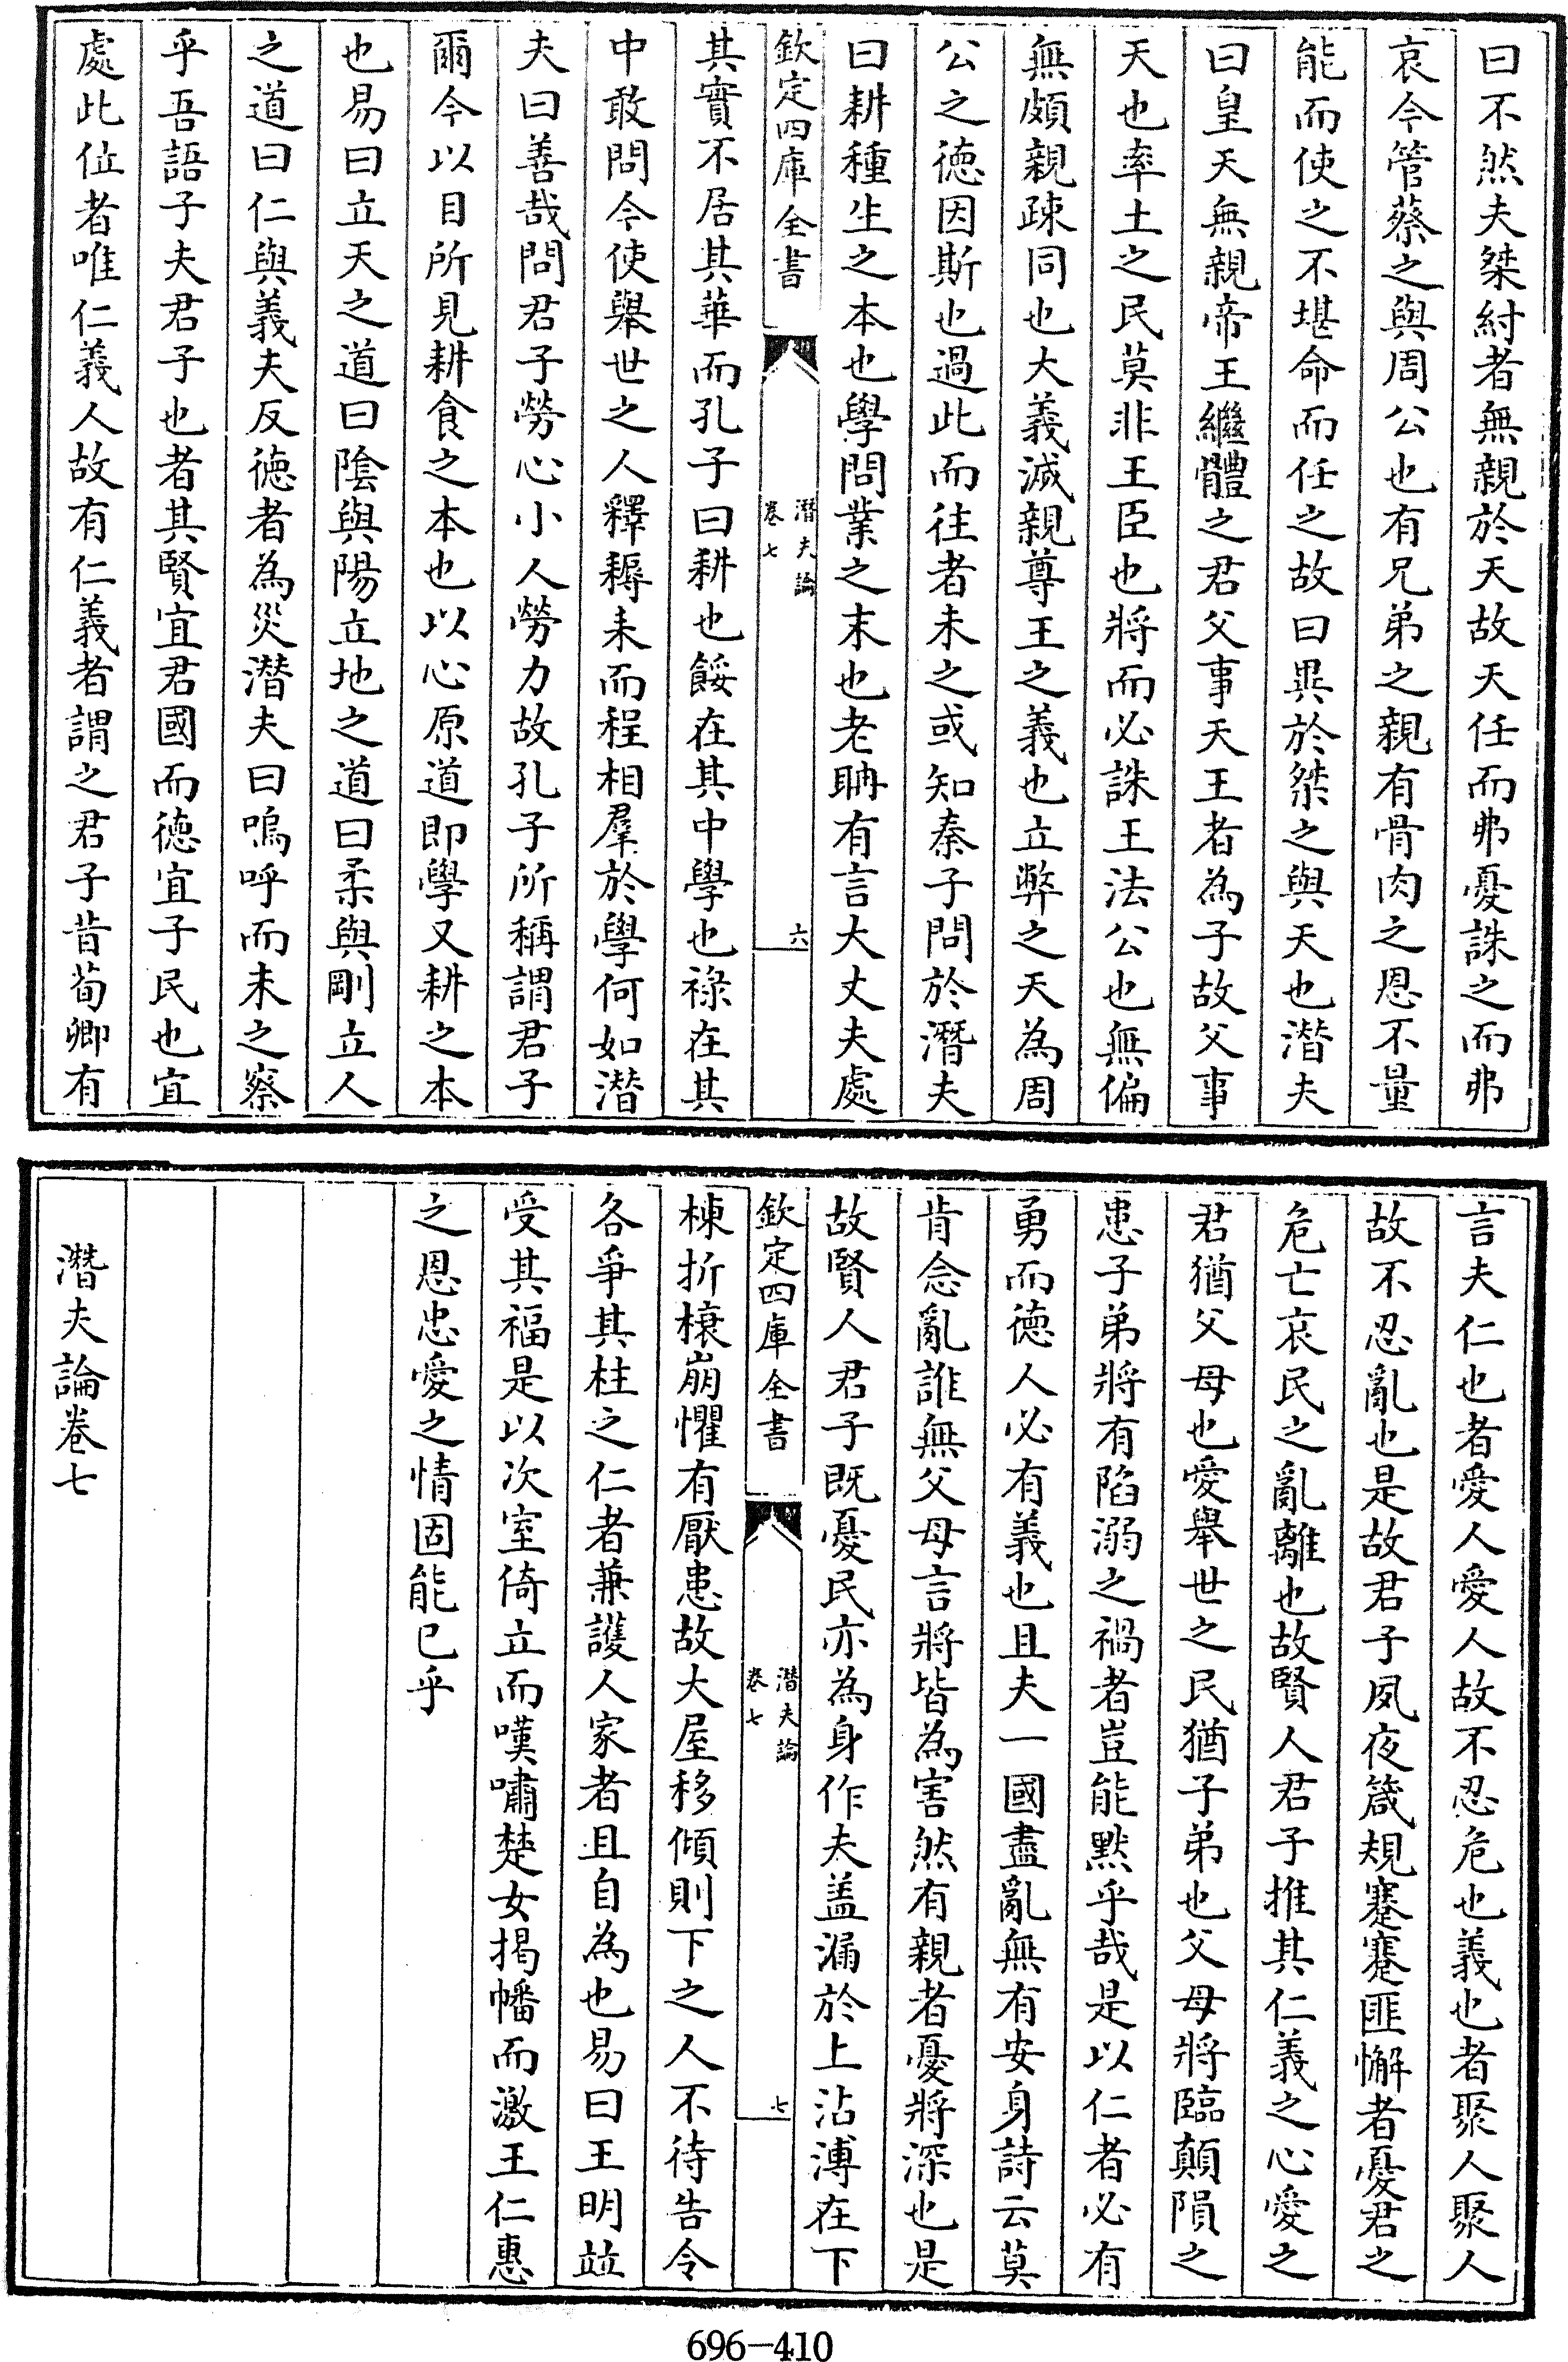 曰不然夫桀紂者無親於天故天任而弗憂誅之而弗
哀今管蔡之與周公也有兄弟之親有骨肉之恩不量
能而使之不堪命而任之故曰異於桀之與天也潜夫
曰皇天無親帝王繼體之君父事天王者為子故父事
天也率土之民莫非王臣也將而必誅王法公也無偏
無頗親疎同也大義滅親尊王之義也立弊之天為周
公之徳因斯也過此而往者未之或知秦子問於潛夫
曰耕種生之本也學問業之末也老聃有言大丈夫處
欽定四庫全書
潜夫論
卷七
六
其實不居其華而孔子曰耕也餒在其中學也祿在其
中敢問今使舉世之人釋耨耒而程相羣於學何如潜
夫曰善哉問君子勞心小人勞力故孔子所稱謂君子
爾今以目所見耕食之本也以心原道即學又耕之本
也易曰立天之道曰陰與陽立地之道曰柔與剛立人
之道曰仁與義夫反徳者為災潜夫曰嗚呼而未之察
乎吾語子夫君子也者其賢宜君國而徳宜子民也宜
處此位者唯仁義人故有仁義者謂之君子昔荀卿有
言夫仁也者愛人愛人故不忍危也義也者聚人聚人
故不忍亂也是故君子夙夜箴規蹇蹇匪懈者憂君之
危亡哀民之亂離也故賢人君子推其仁義之心愛之
君猶父母也愛舉世之民猶子弟也父母將臨顛隕之
患子弟將有陷溺之禍者豈能默乎哉是以仁者必有
勇而徳人必有義也且夫一國盡亂無有安身詩云莫
肯念亂誰無父母言將皆為害然有親者憂將深也是
故賢人君子既憂民亦為身作夫盖漏於上沾溥在下
欽定四庫全書
潜夫論
卷七
七
棟折榱崩懼有厭患故大屋移傾則下之人不待告令
各爭其柱之仁者兼護人家者且自為也易曰王明並
受其福是以次室倚立而嘆嘯楚女揭幡而激王仁惠
之恩忠愛之情固能已乎
潛夫論卷七
696-410